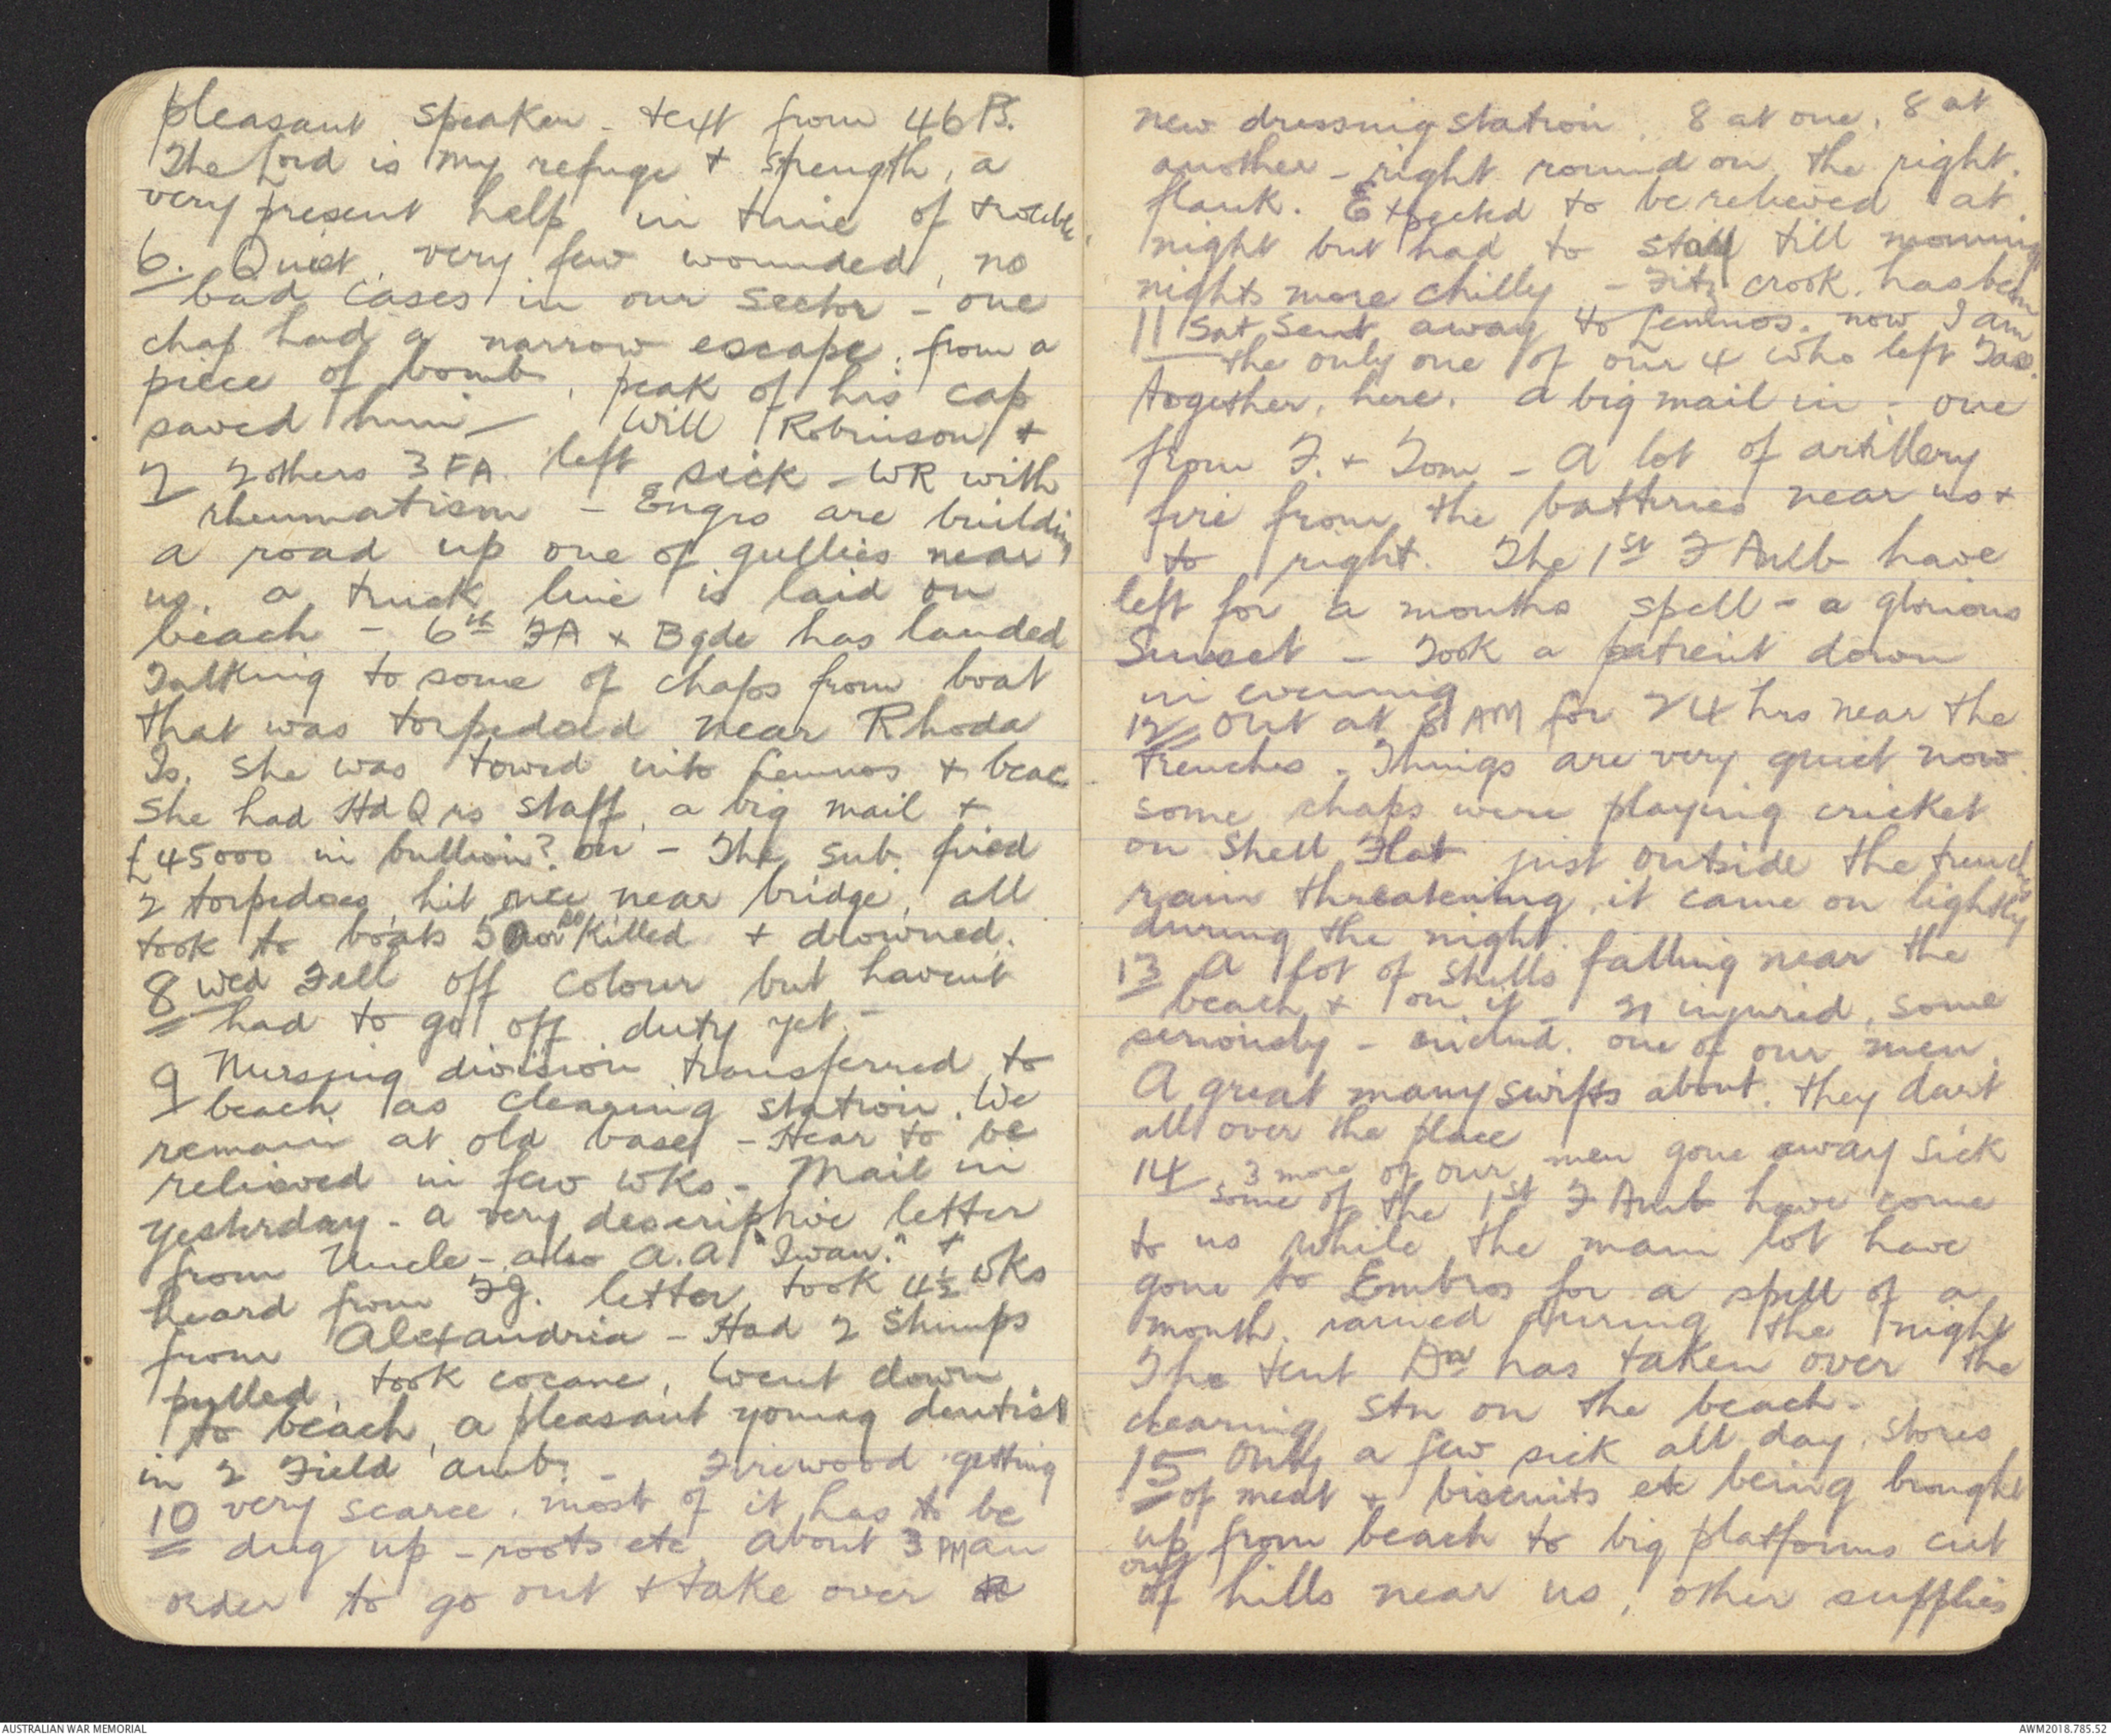 pleasant speaker - text from 46 Ps.
The Lord is my refuge + strength, a
very present help in time of trouble
6. Quiet, very few wounded, no
bad cases in our sector - one
chap had a narrow escape, from a
piece of bomb, peak of his cap
saved him - Will Robinson +
7 2 others 3 FA. left sick - WR with
rheumatism - Engrs are building
a road up one of gullies near
us. a truck line is laid on
beach - 6th FA + Bgde has landed
Talking to some of chaps from boat
that was torpedoed near Rhoda
Is. She was towed into Lemnos + beac
She had Hd Qrs staff, a big mail +
£45000 in bullion? on - The sub. fired
2 torpedoes, hit once near bridge, all
took to boats killed + drowned.
8 Wed Fell off colour but havent
had to go off duty yet -
9 Nursing division transferred to
beach as clearing station. We
remain at old base - Hear to be
relieved in few wks - Mail in
yesterday - a very descriptive letter
from Uncle - also a.a "Swan." +
heard from FG. letter took 4½ wks
from Alexandria - Had 2 Stumps
pulled, took cocane, Went down
to beach, a pleasant young dentist
in 2 Field amb. - Firewood getting
10 very scarce, most of it has to be
dug up - roots etc, about 3 PM an
order to go out + take over
new dressing station. 8 at one, 8 at
another - right round on the right.
flank. Expected to be relieved at
night but had to stay till morning
nights more chilly - Fitz crook, has been
11 Sat Sent away to Lemnos. now I am
the only one of our 4 who left Tas.
together, here. A big mail in - one
from F. + Tom - A lot of artillery
fire from the batteries near us +
to right. The 1st F Amb have
left for a months spell - a glorious
Sunset - Took a patient down
in evening
12 Out at 8 AM for 24 hrs near the
trenches. Things are very quiet now
some chaps were playing cricket
on Shell Flat just outside the trenches
rain threatening, it came on lightly
during the night.
13 A lot of shells falling near the
beach + on it - 21 injured, some
seriously - includ. one of our men.
A great many swifts about. they dart
all over the place
14 3 more of our men gone away sick
some of the 1st F Amb have come
to us while the main lot have
gone to Embros for a spell of a
month. rained during the night
The tent Dn has taken over the
clearing stn on the beach.
15 Only a few sick all day, stores
of meat + biscuits etc being brought
up from beach to big platforms cut
out
of hills near us, other supplies
AUSTRALIAN WAR MEMORIAL
AWM2018.785.52